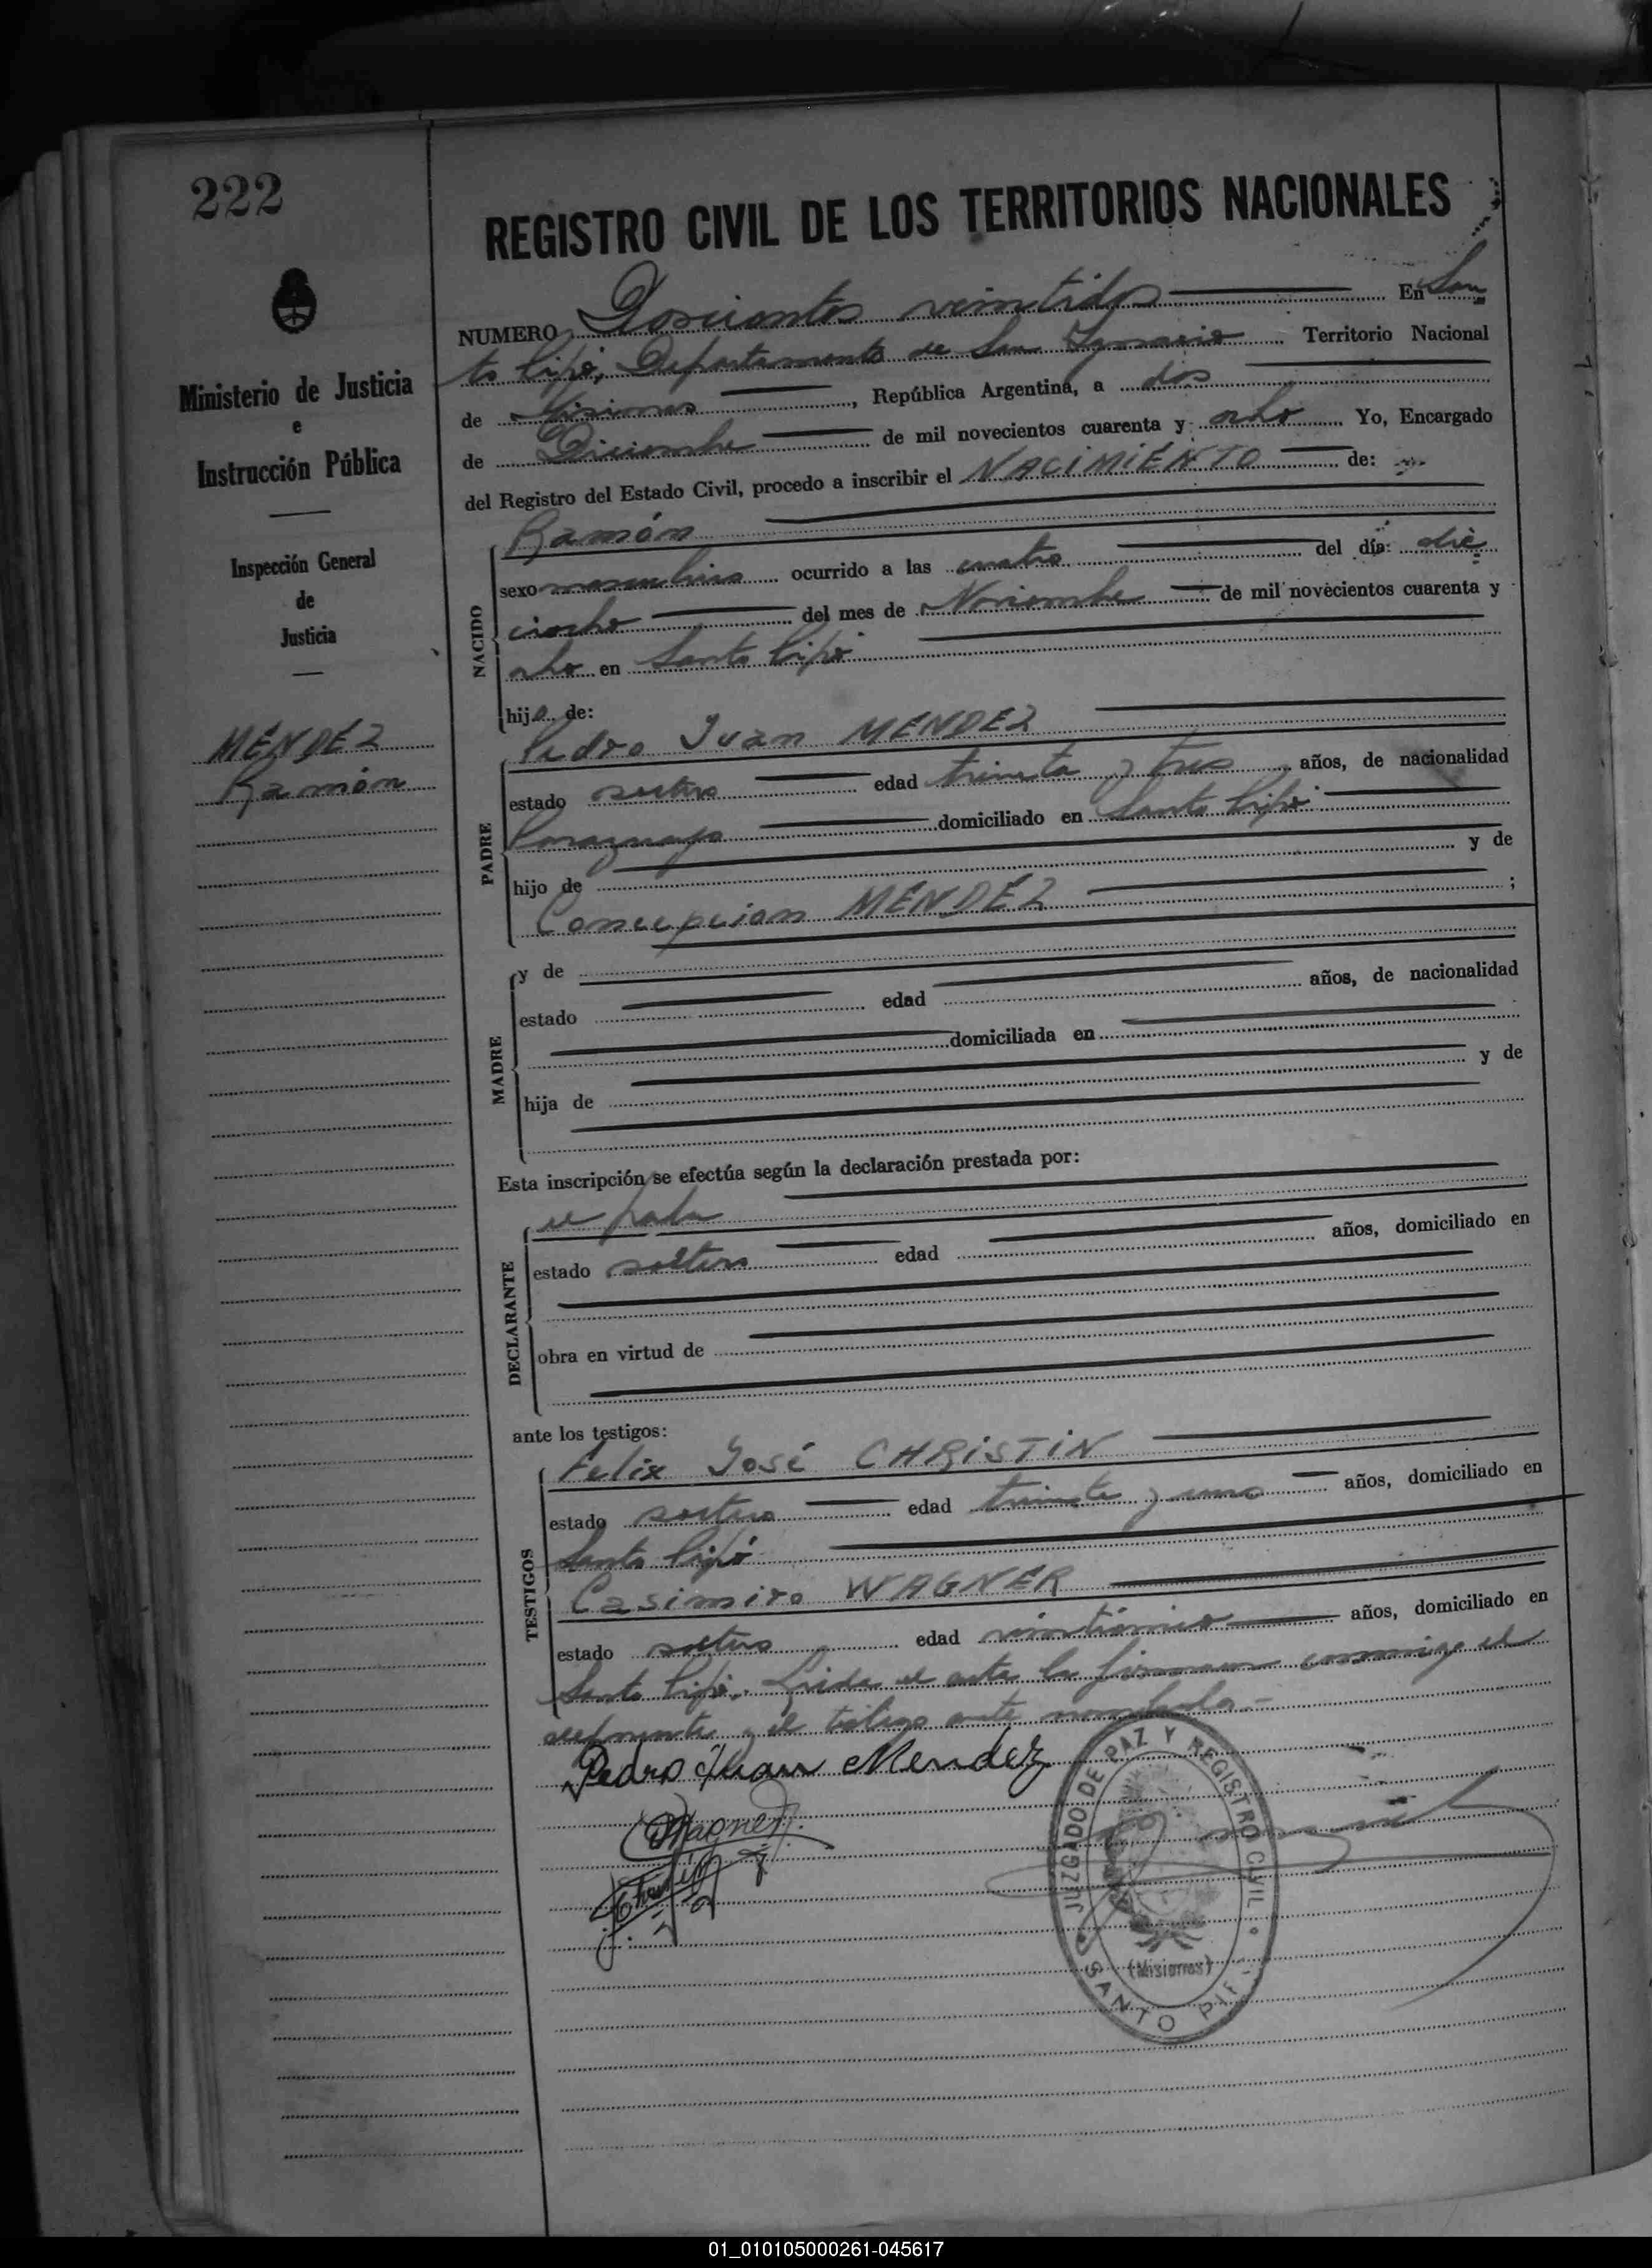 222
REGISTRO CIVIL DE LOS TERRITORIOS NACIONALES
NUMERO Doscientos veintidos En San
to Pipó, Departamento de San Ignacio Territorio Nacional
de Misiones, República Argentina, a dos
de Diciembre de mil novecientos cuarenta y ocho Yo, Encargado
del Registro del Estado Civil, procedo a inscribir el NACIMIENTO de:
Ministerio de Justicia
e
Instrucción Pública
Inspección General
de
Justicia
MENDEZ
Ramón
NACIDO
Ramón
sexo masculino ocurrido a las cuatro del día: die
ciocho del mes de Noviembre de mil novecientos cuarenta y
ocho en Santo Pipó
hijo de:
PADRE
Pedro Juan MENDEZ
estado soltero edad treinta y tres años, de nacionalidad
Paraguayo domiciliado en Santo Pipó
hijo de y de
Concepcion MENDEZ ;
MADRE
y de
estado edad años, de nacionalidad
domiciliada en
hija de y de
Esta inscripción se efectúa según la declaración prestada por:
DECLARANTE
el padre
estado soltero edad años, domiciliado en
obra en virtud de
ante los testigos:
TESTIGOS
Felix José CHRISTIN
estado soltero edad treinta y uno años, domiciliado en
Santo Pipó
Casimiro WAGNER
estado soltero edad veinticinco años, domiciliado en
Santo Pipó. Leida el acta la firmaron conmigo el
declarante y el testigo ante nombrado.-
Pedro Juan Mendez
Wagner
JUZGADO DE PAZ Y REGISTRO CIVIL
(Misiones)
SANTO PIPÓ
01_010105000261-045617